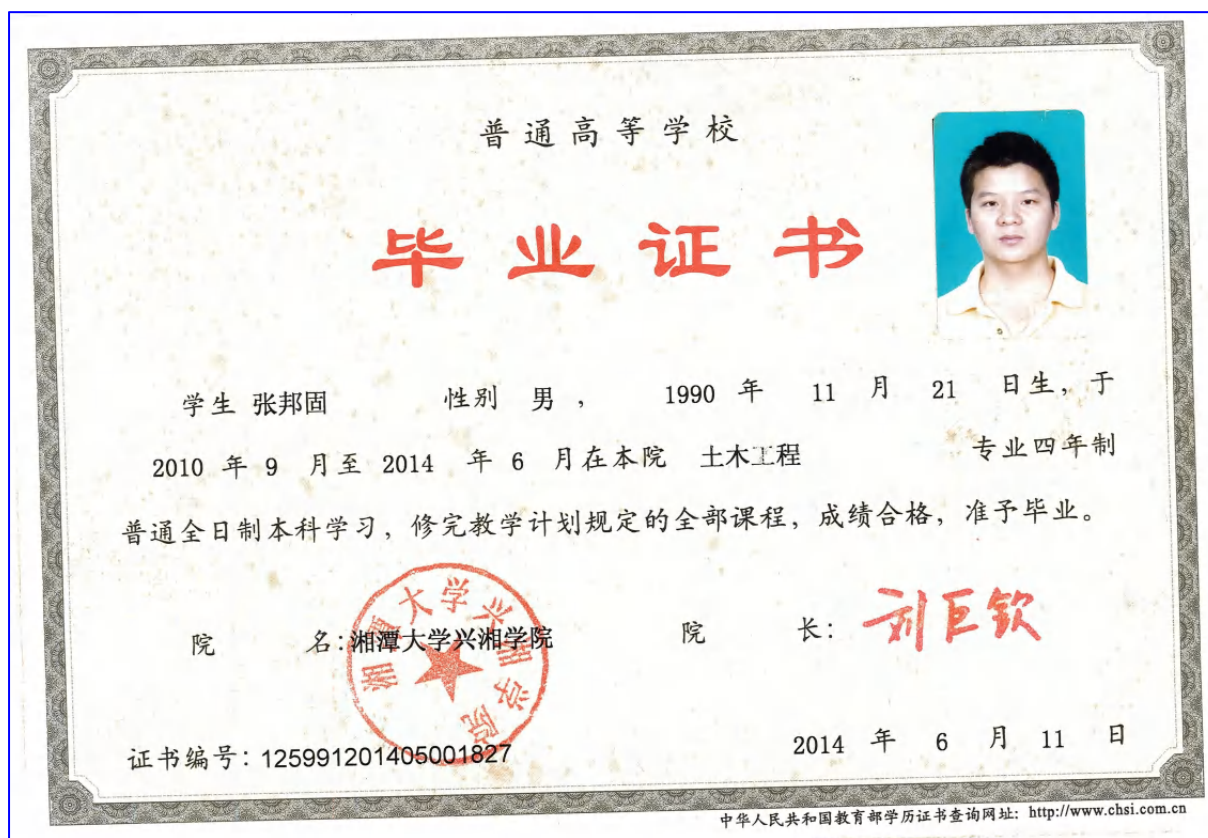 普通高等学校
毕业证书
学生 张邦固 性别 男 , 1990 年 11 月 21 日生, 于
2010 年 9 月至 2014 年 6 月在本院 土木工程 专业四年制
普通全日制本科学习, 修完教学计划规定的全部课程, 成绩合格, 准予毕业。
院 名: 湘潭大学兴湘学院 院 长: 刘巨钦
湘潭大学兴湘学院
证书编号: 125991201405001827 2014 年 6 月 11 日
中华人民共和国教育部学历证书查询网址: http://www.chsi.com.cn